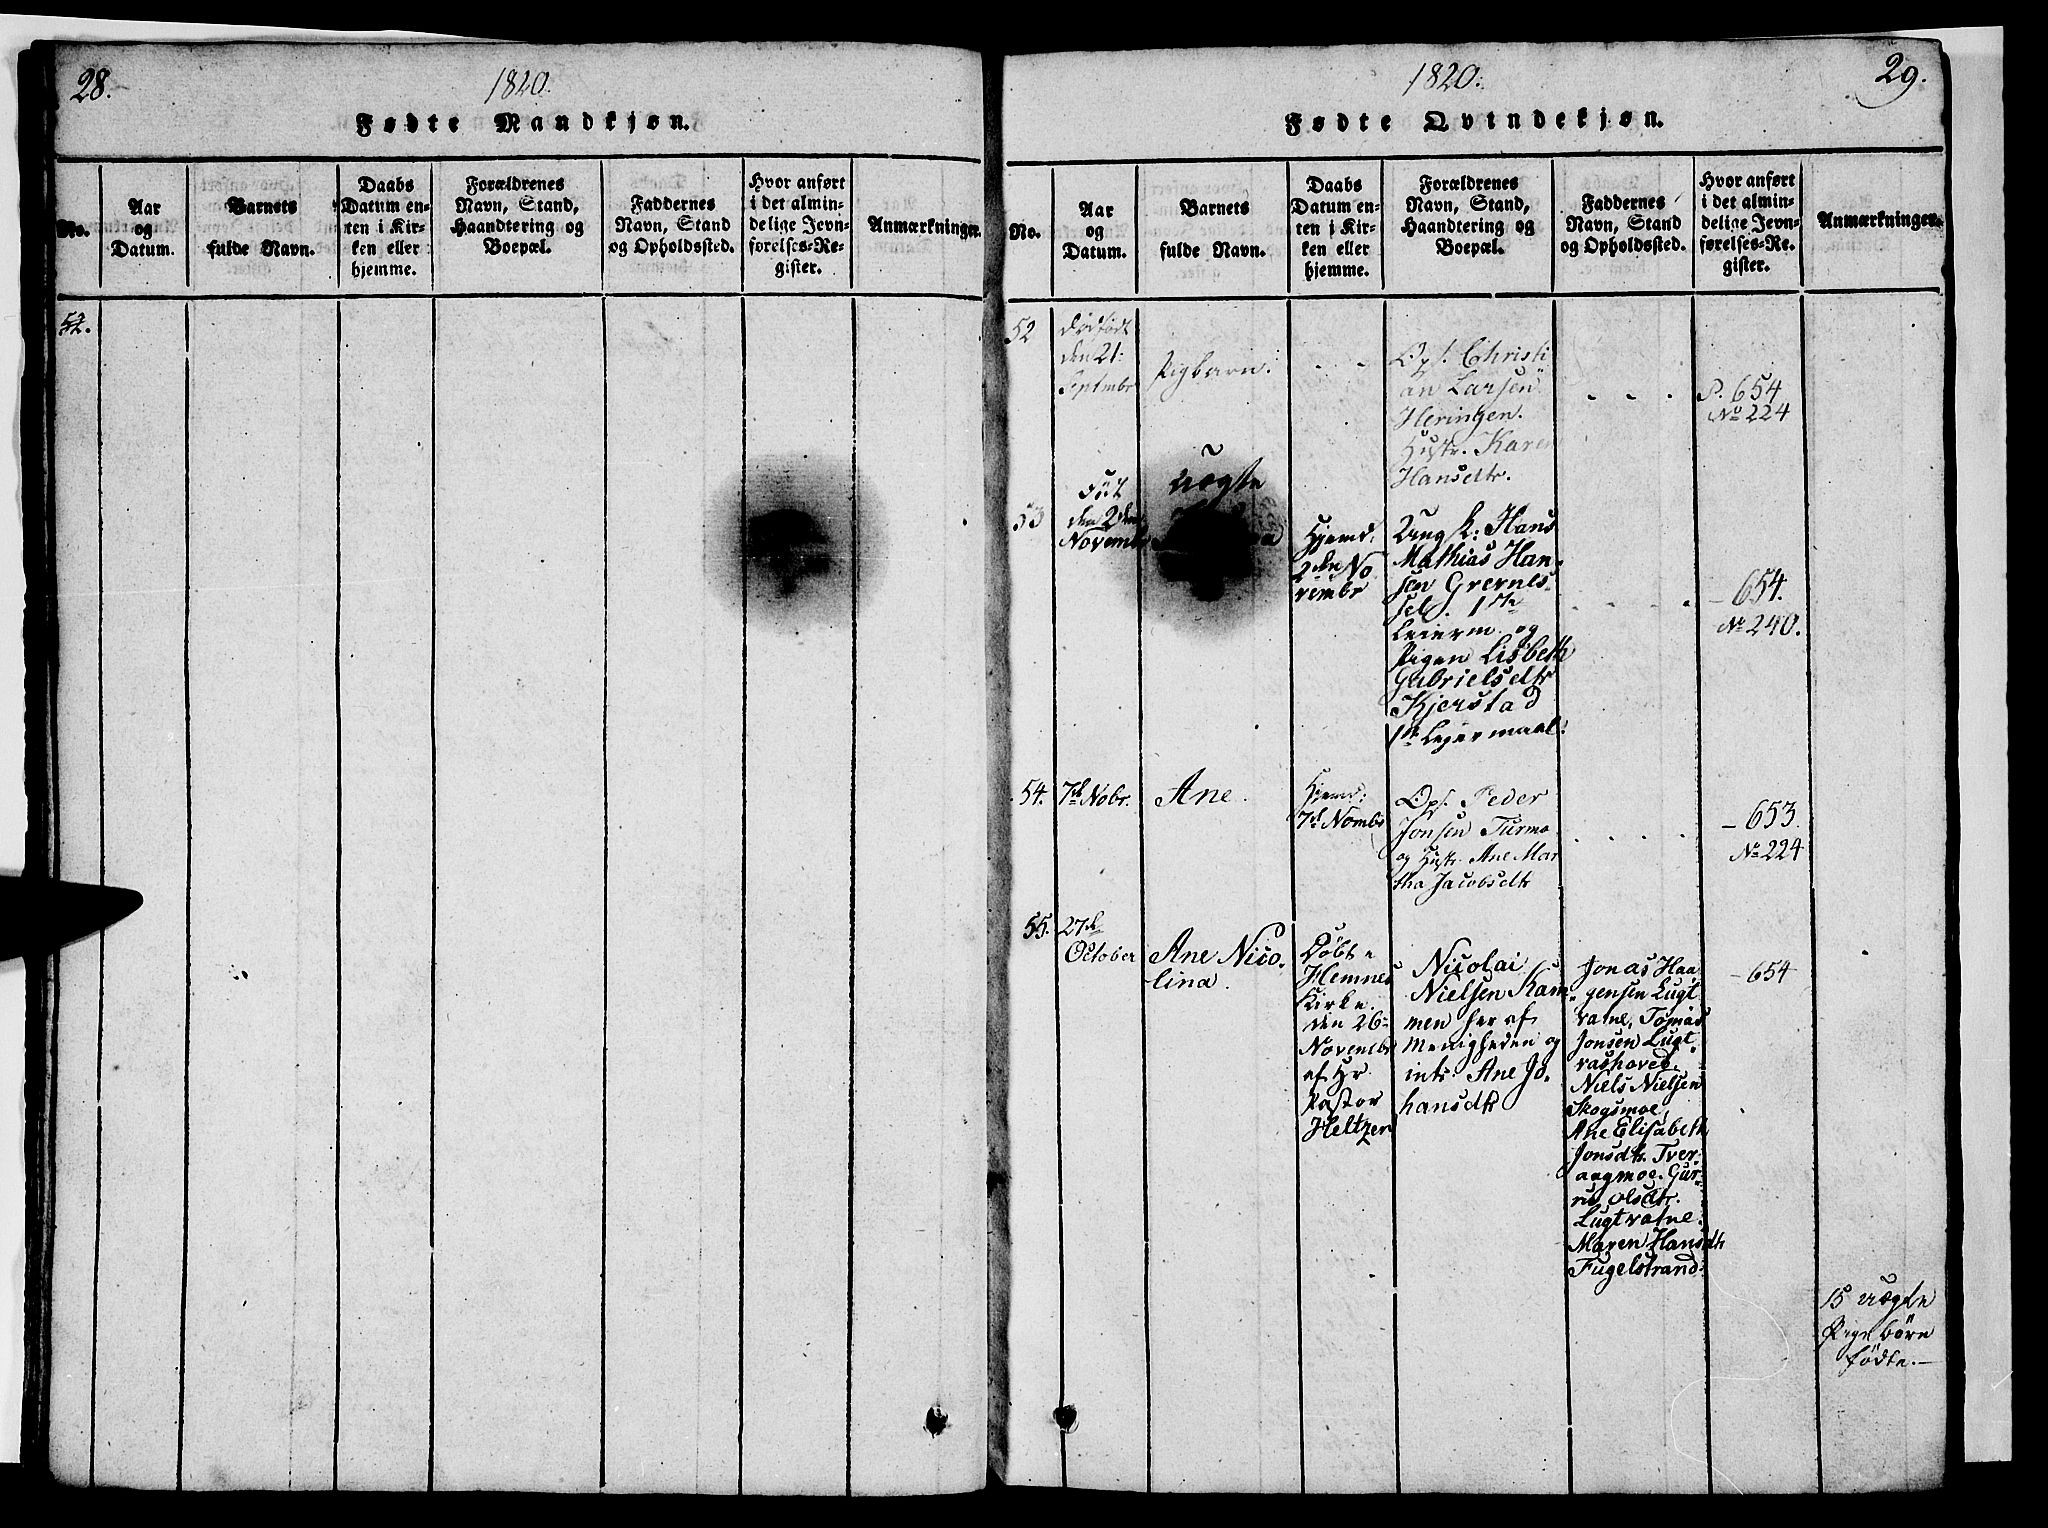 28.
1820.
Fødte Mandkjøn.
No.
Aar
og
Datum.
Barnets
fulde Navn.
Daabs
Datum en-
ten i Kir-
ken eller
hjemme.
Forældrenes
Navn, Stand,
Haandtering og
Boepæl.
Faddernes
Navn, Stand
og Opholdssted.
Hvor anført
i det almin-
delige Jevn-
førelses-Re-
gister.
Anmærkninger.
52.
1820.
29.
Fødte Qvindekjøn.
No.
Aar
og
Datum.
Barnets
fulde Navn.
Daabs
Datum en-
ten i Kir-
ken eller
hjemme.
Forældrenes
Navn, Stand,
Haandtering og
Boepæl.
Faddernes
Navn, Stand
og Opholdssted.
Hvor anført
i det almin-
delige Jevn-
førelses-Re-
gister.
Anmærkninger.
52
dødfødt
den 21:
Septembr
Pigbarn.
Ops. Christi
an Larsen
Heringen.
Hustr. Karen
Hansdtr.
P. 654
No 224
53
Født
den 2den
Novembr
uægte
Hjemd.
2den No
vembr
Ung k: Hans
Mathias Han-
sen Grevnes-
sel. 1ste
Leierm. og
Pigen Lisbeth
Gabrielsdtr
Kjerstad
1ste Lejermaal.
- 654.
No 240.
54.
7de Nobr.
Ane.
Hjemd:
7de Nombr
Ops. Peder
Jonsen Turmo
og Hustr. Ane Mar
tha Jacobsdtr
- 653.
No 224
55.
27de
October
Ane Nico-
lina.
Døbt i
Hemnes
Kirke
den 26-
Novembr
af Hr
Pastor
Heltzen
Nicolai
Nielsen Kam-
men her af
Menigheden og
Ane Jo-
hansdtr
Jonas Haa
gensen Lugt
vatne, Tomas
Jonsen Lugt-
vashoved
Niels Nielsen
Skogsmoe,
Ane Elisabeth
Jonsdtr. Tver-
aagmoe. Gur-
ru Olsdtr.
Lugtvatne.
Maren Hansdtr
Fugelstrand.
- 654
15 uægte
Pige børn
fødte.-